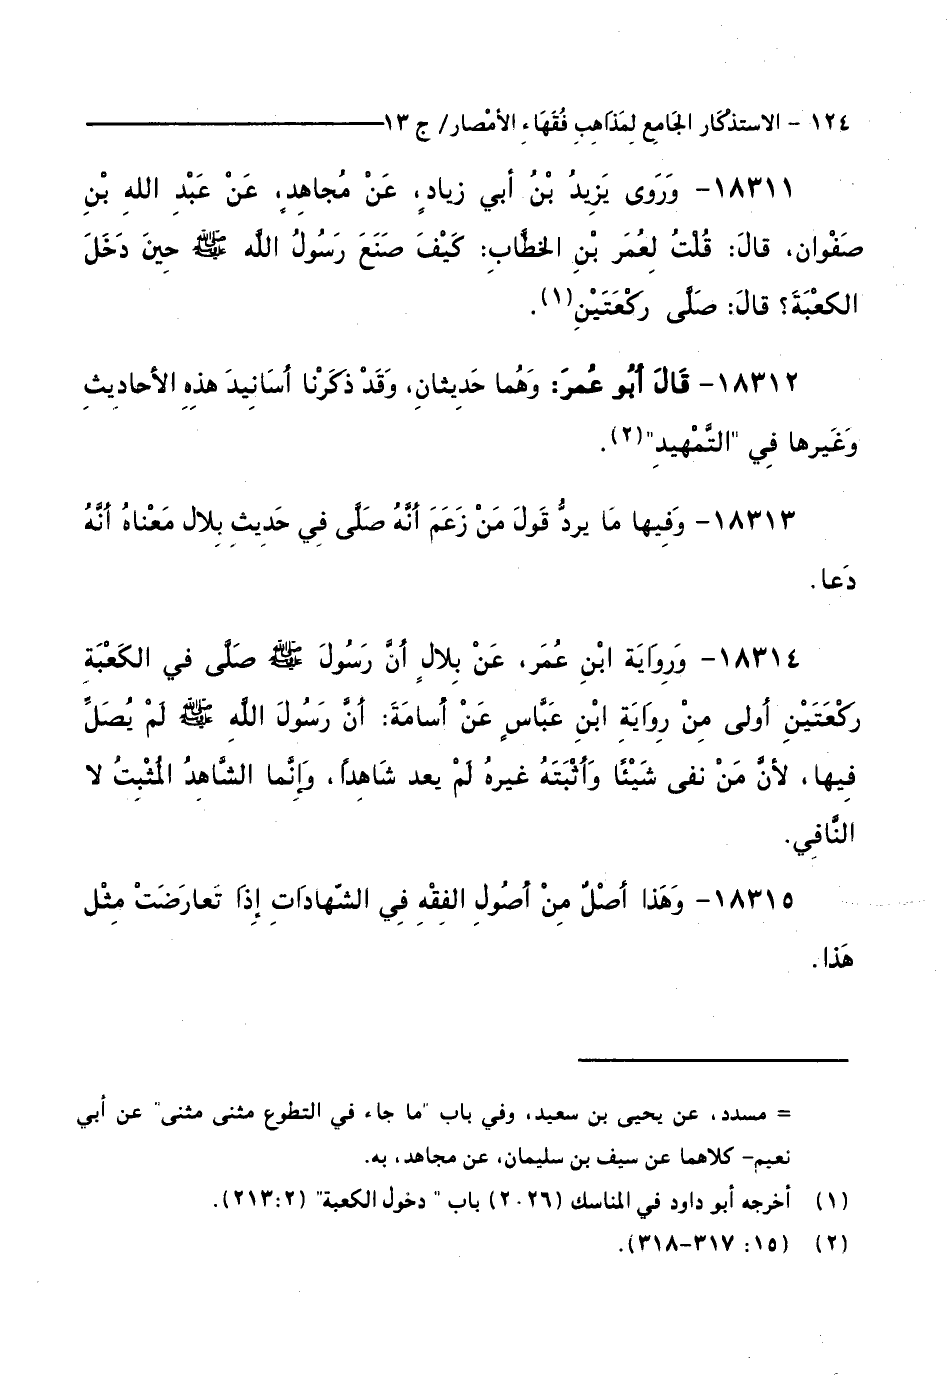 ١٢٤ - الاستذْكَار الجَامِع لِمَذَاهِبِ فُقَهَاءِ الأمْصار/ ج ١٣
١٨٣١١- وَرَوى يَزِيدُ بْنُ أبي زيادٍ، عَنْ مُجاهِدٍ، عَنْ عَبْدِ اللهِ بْنِ
صَفْوان، قالَ: قُلْتُ لِعُمَر بْنِ الخطَّابِ: كَيْفَ صَنَعَ رَسُولُ اللَّه ﷺ حِينَ دَخَلَ
الكعْبَةَ؟ قالَ: صَلَّى رَكْعَتَيْنِ(١).
١٨٣١٢- قَالَ أَبُو عُمرَ: وَهُما حَدِيثانِ، وَقَدْ ذكَرْنا أسَانِيدَ هذهِ الأحادِيثِ
وَغَيرها فِي "التَّمْهِيدِ"(٢).
١٨٣١٣- وَفِيها مَا يردُّ قَولَ مَنْ زَعَمَ أنَّهُ صَلَّى فِي حَدِيثِ بِلال مَعْناهُ أنَّهُ
دَعا.
١٨٣١٤- وَرِوَايَة ابْنِ عُمَر، عَنْ بِلالٍ أنَّ رَسُولَ ﷺ صَلَّى في الكَعْبَةِ
رَكْعَتَيْنِ أولى مِنْ رِوَايَةِ ابْنِ عَبَّاسٍ عَنْ أسامَةَ: أنَّ رَسُولَ اللَّه ﷺ لَمْ يُصَلِّ
فِيها، لأنَّ مَنْ نفى شَيْئًا وَأثْبَتَهُ غيرهُ لَمْ يعد شَاهِداً، وَإِنَّما الشَّاهِدُ المُثْبِتُ لا
النَّافِي.
١٨٣١٥- وَهَذا أصْلٌ مِنْ أصُولِ الفِقْهِ فِي الشّهادَاتِ إِذَا تَعارَضَتْ مِثْل
هَذا.
= مسدد، عن يحيى بن سعيد، وفي باب "ما جاء في التطوع مثنى مثنى" عن أبي
نعيم- كلاهما عن سيف بن سليمان، عن مجاهد، به.
(١) أخرجه أبو داود في المناسك (٢٠٢٦) باب " دخول الكعبة" (٢:٢١٣).
(٢) (١٥: ٣١٧-٣١٨).